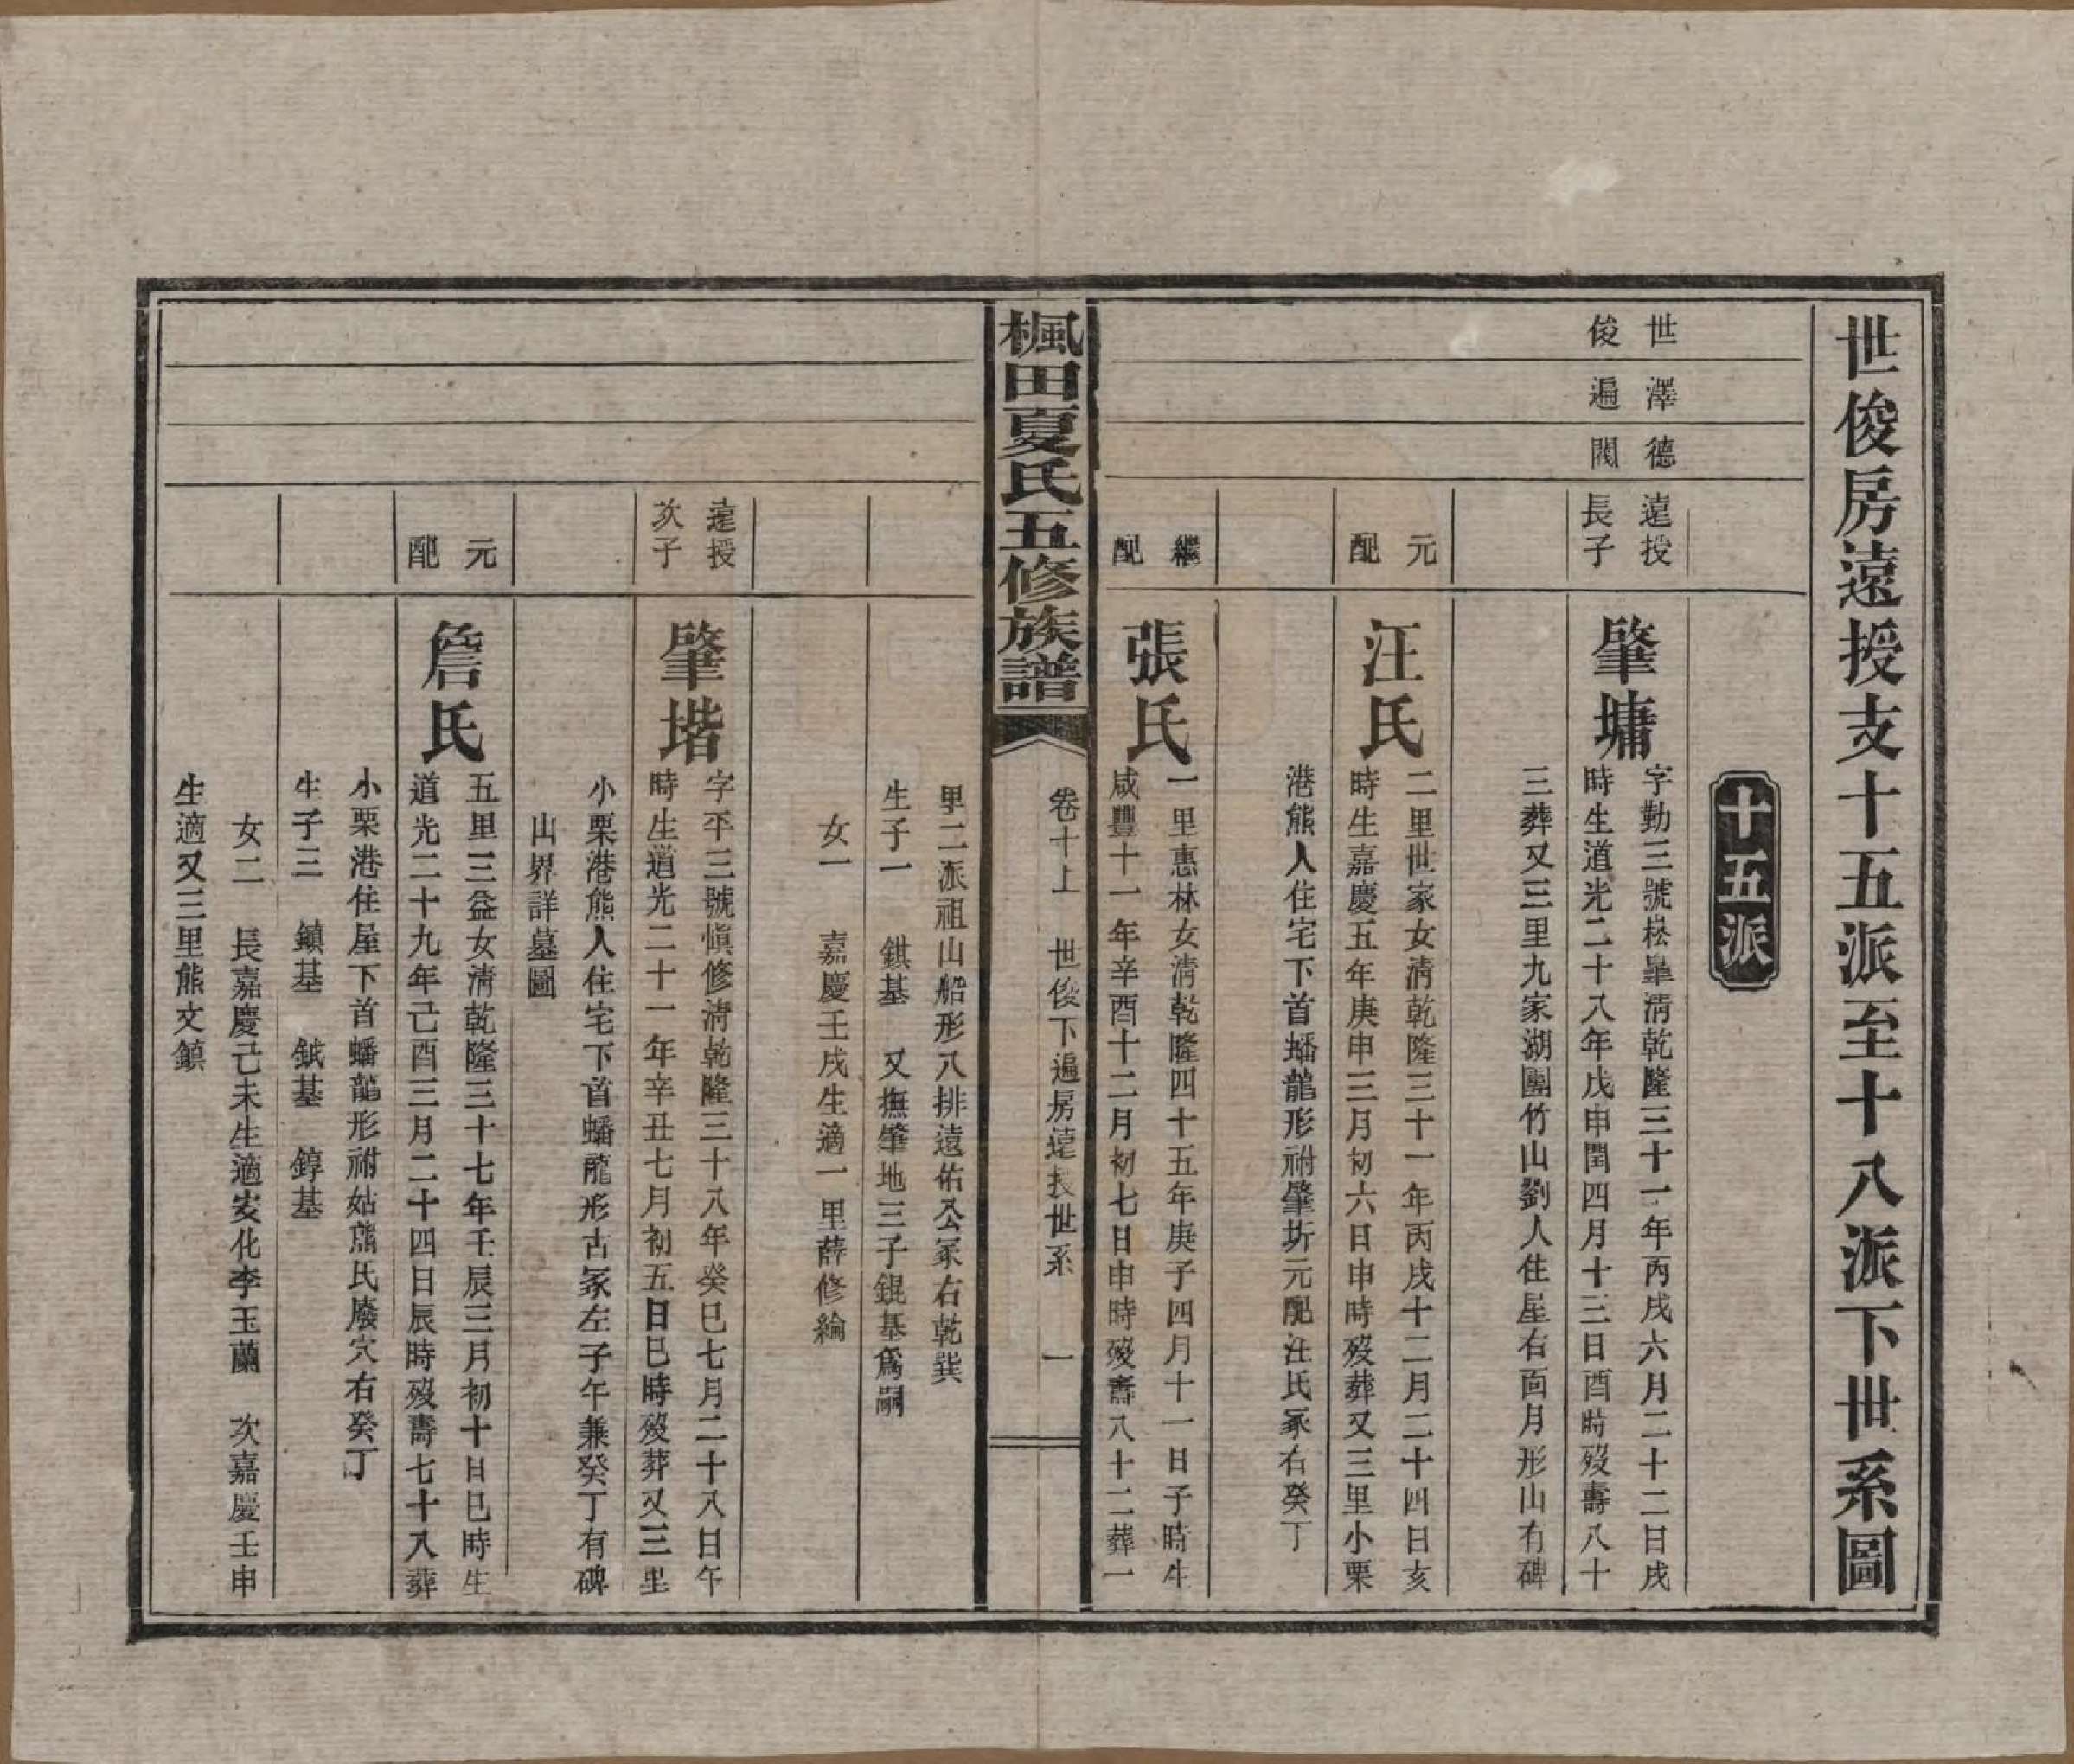 世俊房遠授支十五派至十八派下世系圖
十五派
世澤德
俊遍閥
遠授
長子
肇墉
字勤三號崧臯淸乾隆三十一年丙戌六月二十二日戌
時生道光二十八年戊申閏四月十三日酉時歿壽八十
三葬又三里九家湖團竹山劉人住屋右面月形山有碑
元
配
汪氏
二里世家女淸乾隆三十一年丙戌十二月二十四日亥
時生嘉慶五年庚申三月初六日申時歿葬又三里小栗
港熊人住宅下首蟠龍形祔肇圻元配汪氏冢右癸丁
繼
配
張氏
一里惠林女淸乾隆四十五年庚子四月十一日子時生
咸豐十一年辛酉十二月初七日申時歿壽八十二葬一
楓田夏氏五修族譜
卷十上　世俊下遍房遠授世系　一
里二派祖山船形八排遠佑公冢右乾巽
生子一　鉷基　又撫肇地三子錕基爲嗣
女一　嘉慶壬戌生適一里薛修綸
遠授
次子
肇堦
字平三號愼修淸乾隆三十八年癸巳七月二十八日午
時生道光二十一年辛丑七月初五日巳時歿葬又三里
小栗港熊人住宅下首蟠龍形古冢左子午兼癸丁有碑
山界詳墓圖
元
配
詹氏
五里三益女淸乾隆三十七年壬辰三月初十日巳時生
道光二十九年己酉三月二十四日辰時歿壽七十八葬
小栗港住屋下首蟠龍形祔姑熊氏廢穴右癸丁
生子三　鎮基　鉞基　錞基
女二　長嘉慶己未生適安化李玉蘭　次嘉慶壬申
生適又三里熊文鎮